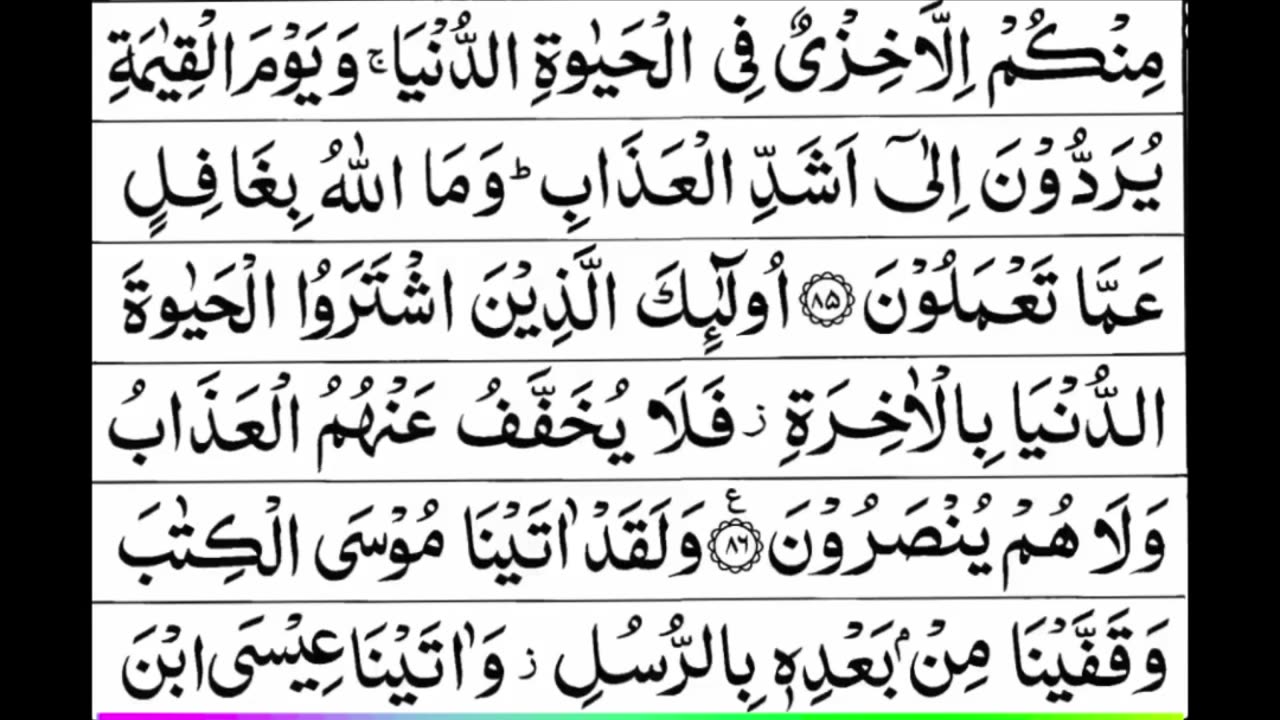 مِنْكُمْ اِلَّا خِزْیٌ فِی الْحَیٰوةِ الدُّنْیَا ۚ وَ یَوْمَ الْقِیٰمَةِ
یُرَدُّوْنَ اِلٰۤی اَشَدِّ الْعَذَابِ ؕ وَ مَا اللّٰهُ بِغَافِلٍ
عَمَّا تَعْمَلُوْنَ ﴿۸۵﴾ اُولٰٓئِكَ الَّذِیْنَ اشْتَرَوُا الْحَیٰوةَ
الدُّنْیَا بِالْاٰخِرَةِ ؗ فَلَا یُخَفَّفُ عَنْهُمُ الْعَذَابُ
وَ لَا هُمْ یُنْصَرُوْنَ ﴿۸۶﴾ ع وَ لَقَدْ اٰتَیْنَا مُوْسَی الْكِتٰبَ
وَ قَفَّیْنَا مِنْۢ بَعْدِهٖ بِالرُّسُلِ ؗ وَ اٰتَیْنَا عِیْسَی ابْنَ